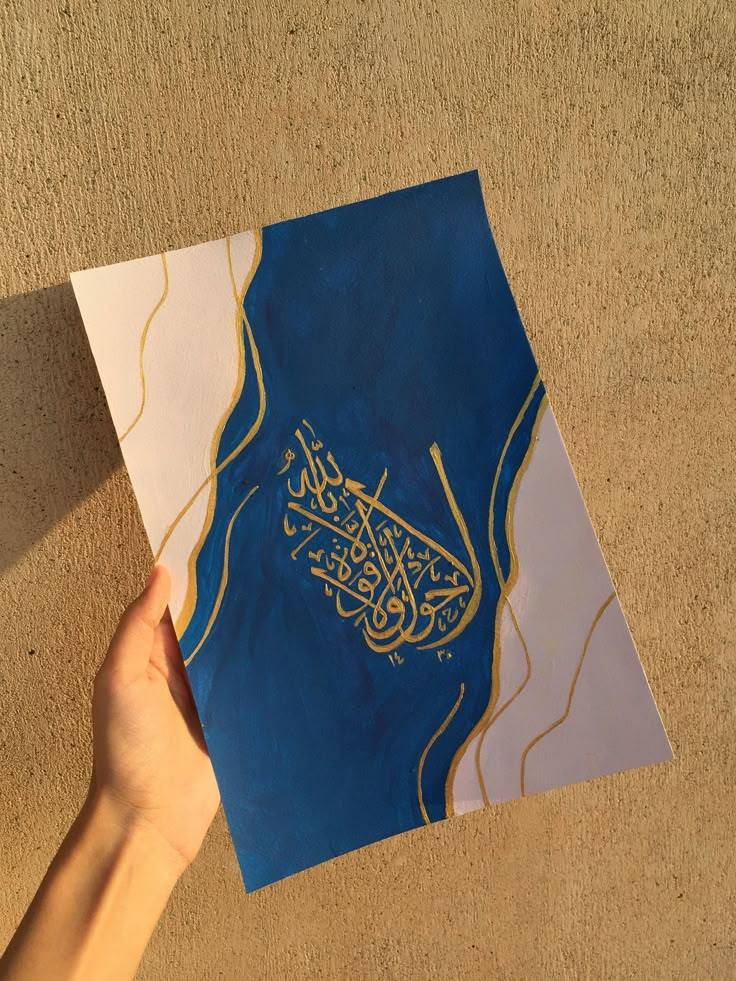 لا حول ولا قوة إلا بالله
١٤ ٣٠